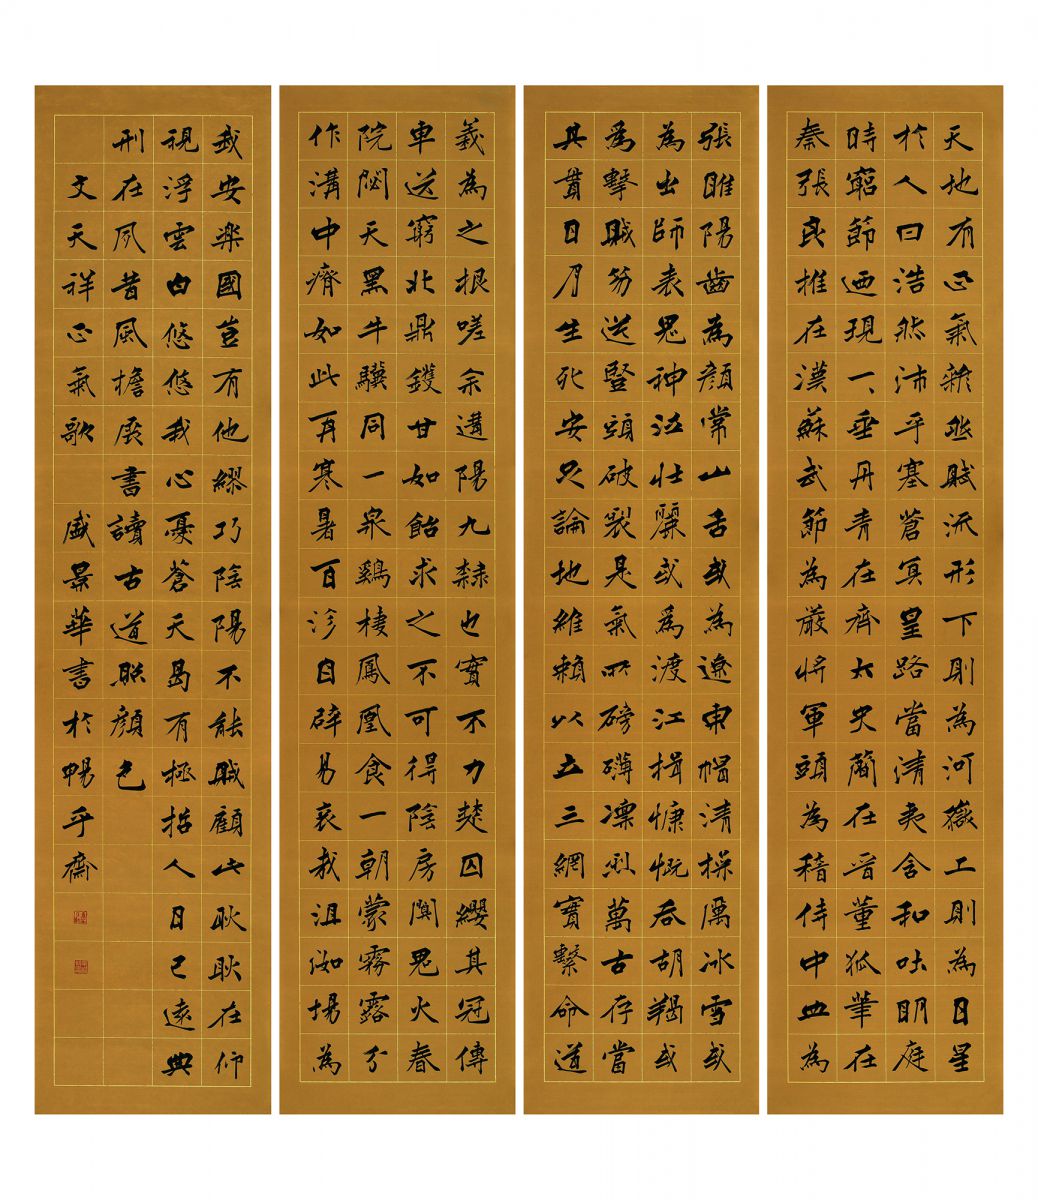 天地有正氣雜然賦流形下則為河嶽上則為日星
於人曰浩然沛乎塞蒼冥皇路當清夷含和吐明庭
時窮節迺現一一垂丹青在齊太史簡在晉董狐筆在
秦張良推在漢蘇武節為嚴將軍頭為稽侍中血為
張睢陽齒為顏常山舌或為遼東帽清操厲冰雪或
為出師表鬼神泣壯麗或為渡江楫慷慨吞胡羯或
為擊賊笏逆豎頭破裂是氣所磅礴凜烈萬古存當
其貫日月生死安足論地維賴以立三綱實繫命道
義為之根嗟余遘陽九隸也實不力楚囚纓其冠傳
車送窮北鼎鑊甘如飴求之不可得陰房闃鬼火春
院閟天黑牛驥同一皂鷄棲鳳凰食一朝蒙霧露分
作溝中瘠如此再寒暑百沴自辟易哀哉沮洳場為
我安樂國豈有他繆巧陰陽不能賊顧此耿耿在仰
視浮雲白悠悠我心憂蒼天曷有極哲人日已遠典
刑在夙昔風檐展書讀古道照顏色
文天祥正氣歌 盛景華書於暢乎齋